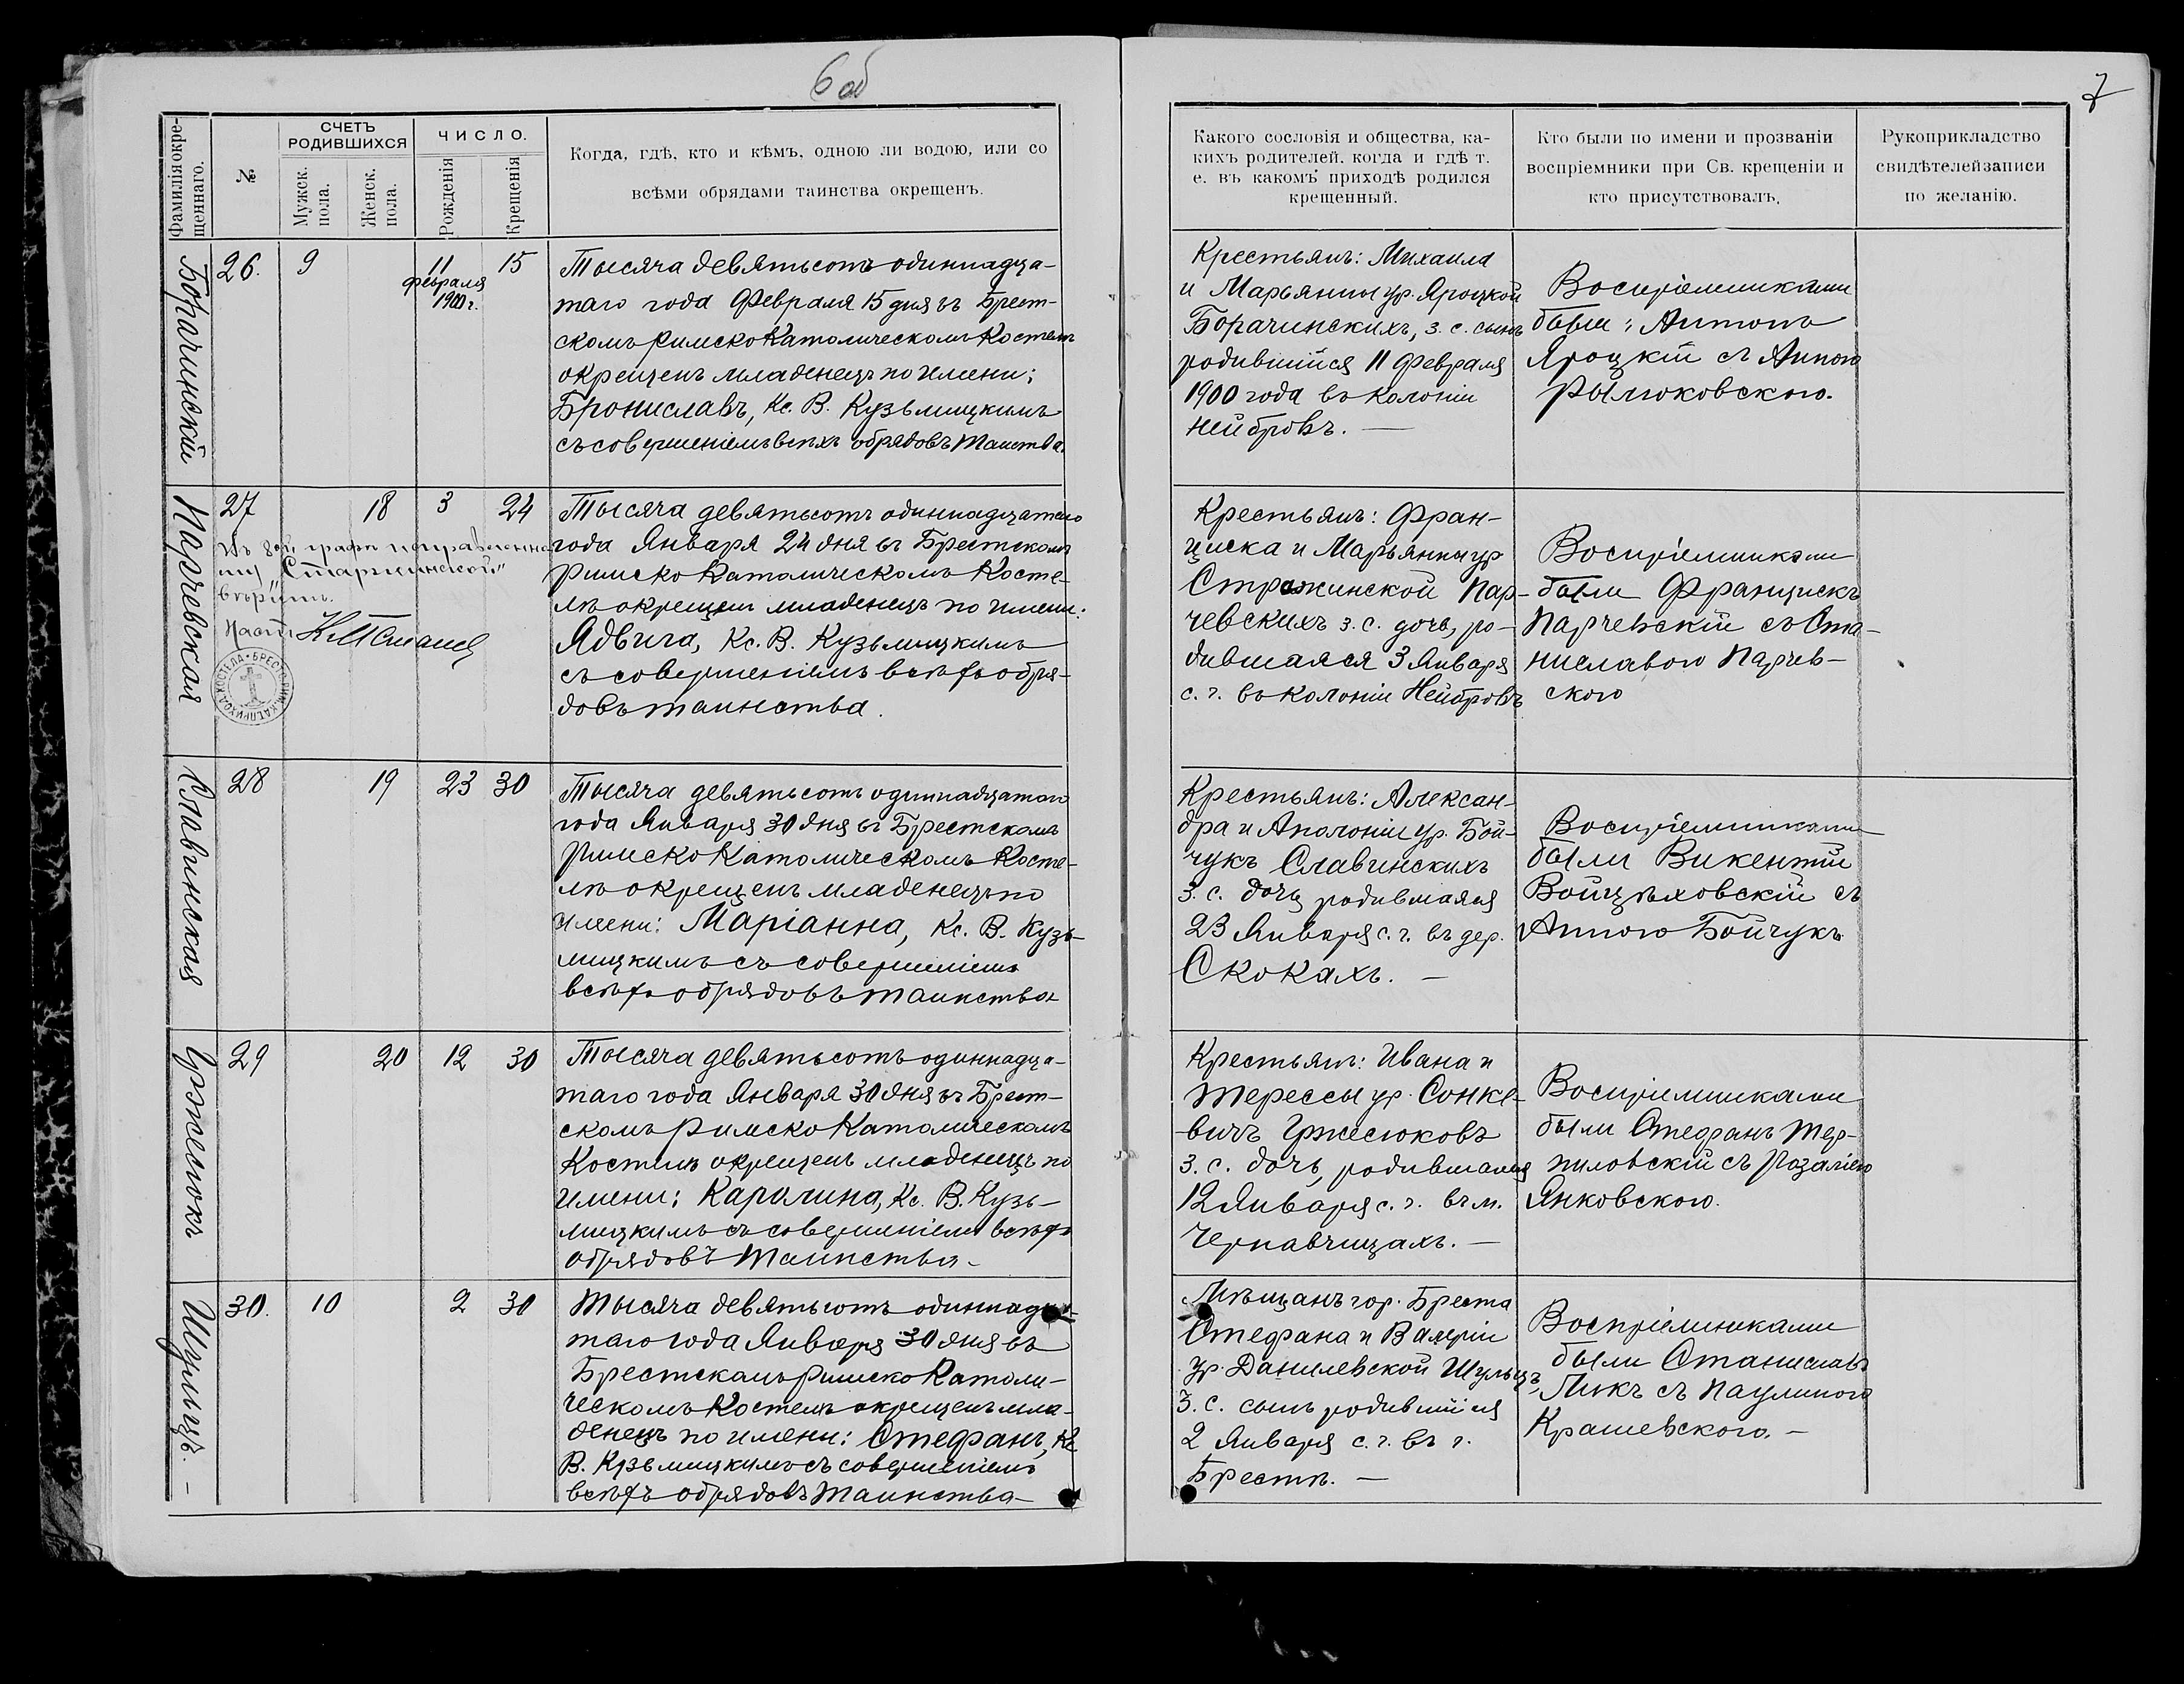 6 об
Фамилія окре-
щеннаго.
№
СЧЕТЪ
РОДИВШИХСЯ
Мужск.
пола.
Женск.
пола.
ЧИСЛО.
Рожденія
Крещенія
Когда, гдѣ, кто и кѣмъ, одною ли водою, или со
всѣми обрядами таинства окрещенъ.
Борачинскій
26.
9
11
февраля
1900 г.
15
Тысяча девятьсотъ одиннадца-
таго года Февраля 15 дня въ Брест-
скомъ Римско Католическомъ Костелѣ
окрещенъ младенецъ по имени:
Брониславъ, Кс. В. Кузьмицкимъ
съ совершеніемъ всѣхъ обрядовъ Таинства.
Парчевская
27
18
3
24
Въ 8ой графѣ исправленно-
му „Старжинской"
вѣрить.
Наст.
БРЕСТ. РИМ. КАТ. ПРИХОД. КОСТЕЛА
Тысяча девятьсотъ одиннадцатаго
года Января 24 дня въ Брестскомъ
Римско Католическомъ Косте-
лѣ окрещенъ младенецъ по имени:
Ядвига, Кс. В. Кузьмицкимъ
съ совершеніемъ всѣхъ обря-
довъ таинства.
Славинская
28
19
23
30
Тысяча девятьсотъ одиннадцатаго
года Января 30 дня въ Брестскомъ
Римско Католическомъ Косте-
лѣ окрещенъ младенецъ по
имени: Маріанна, Кс. В. Кузь-
мицкимъ съ совершеніемъ
всѣхъ обрядовъ таинства
Гржесюкъ
29
20
12
30
Тысяча девятьсотъ одиннадца-
таго года Января 30 дня въ Брест-
скомъ Римско Католическомъ
Костелѣ окрещенъ младенецъ по
имени: Каролина, Кс. В. Кузь-
мицкимъ съ совершеніемъ всѣхъ
обрядовъ Таинства-
Шульцъ. -
30.
10
2
30
Тысяча девятьсотъ одиннадца-
таго года Января 30 дня въ
Брестскомъ Римско Католи-
ческомъ Костелѣ окрещенъ мла-
денецъ по имени: Стефанъ, Кс.
В. Кузьмицкимъ съ совершеніемъ
всѣхъ обрядовъ Таинства-
7
Какого сословія и общества, ка-
кихъ родителей, когда и гдѣ т.
е. въ какомъ приходѣ родился
крещенный.
Кто были по имени и прозваніи
воспріемники при Св. крещеніи и
кто присутствовалъ,
Рукоприкладство
свидѣтелей записи
по желанію.
Крестьянъ: Михаила
и Марьянны ур. Яроцкой
Борачинскихъ, з. с. сынъ
родившійся 11 Февраля
1900 года въ колоніи
Нейбровъ. —
Воспріемниками
были: Антонъ
Яроцкій съ Анною
Рылюковскою.
Крестьянъ: Фран-
циска и Марьянны ур.
Стржинской Пар-
чевскихъ з. с. дочь, ро-
дившаяся 3 Января
с. г. въ колоніи Нейбровъ
Воспріемниками
были Францискъ
Парчевскій съ Ста-
ниславою Парчев-
скою
Крестьянъ: Алексан-
дра и Аполоніи ур. Бой-
чукъ Славинскихъ
з. с. дочь родившаяся
23 Января с. г. въ дер.
Скокахъ. —
Воспріемниками
были Викентій
Войцѣховскій съ
Анною Бойчукъ
Крестьянъ: Ивана и
Терессы ур. Сонке-
вичъ Гржесюковъ
з. с. дочь, родившаяся
12 Января с. г. въ м.
Чернавчицахъ. —
Воспріемниками
были Стефанъ Тер-
пиловскій съ Розаліею
Янковскою.
Мѣщанъ гор. Бреста
Стефана и Валеріи
ур. Данилевской Шульцъ,
з. с. сынъ родившійся
2 Января с. г. въ г.
Брестѣ. —
Воспріемниками
были Станиславъ
Пикъ съ Паулиною
Крашевскою. —